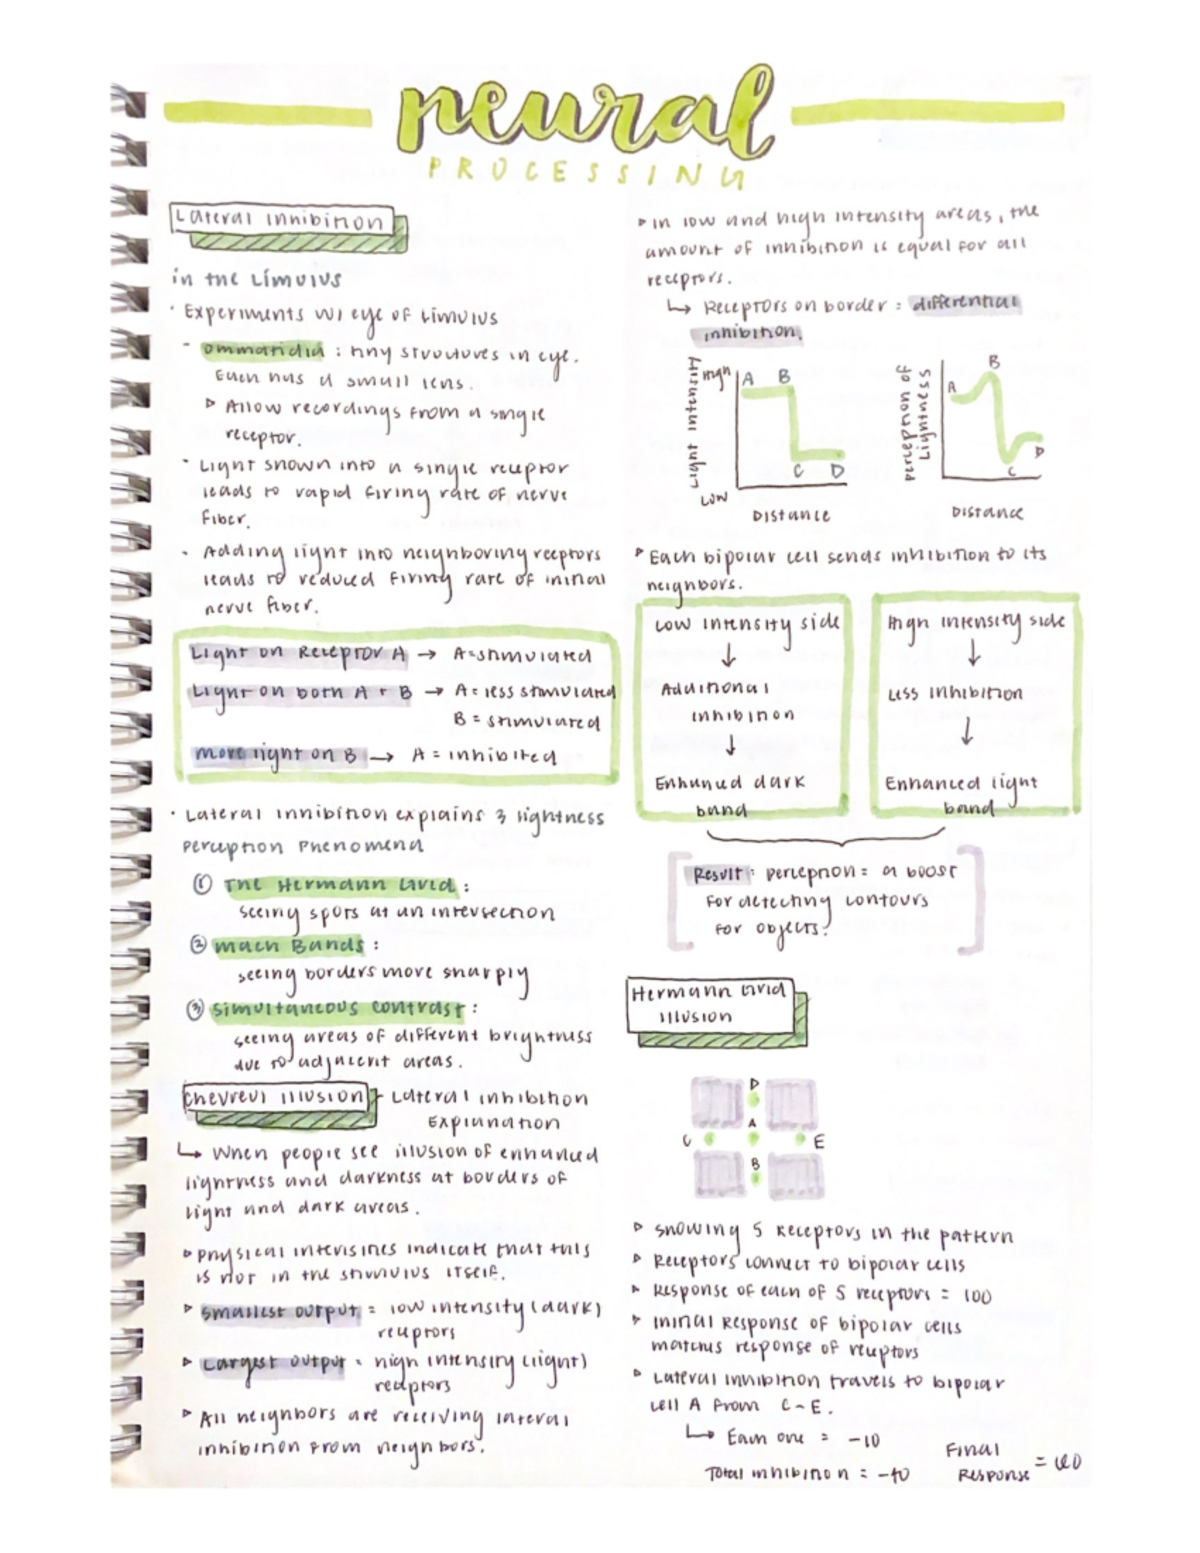 neural
PROCESSING
Lateral Inhibition
in the Limulus
· Experiments w/ eye of Limulus
- ommatidia : tiny structures in eye.
Each has a small lens.
▹ Allow recordings from a single
receptor.
· Light shown into a single receptor
leads to rapid firing rate of nerve
fiber.
· Adding light into neighboring receptors
leads to reduced firing rate of initial
nerve fiber.
Light on Receptor A → A=stimulated
Light on both A + B → A = less stimulated
B = stimulated
more light on B → A = inhibited
· Lateral Inhibition explains 3 lightness
perception phenomena
① The Hermann Grid :
seeing spots at an intersection
② Mach Bands :
seeing borders more sharply
③ simultaneous contrast :
seeing areas of different brightness
due to adjacent areas.
Chevreul Illusion - Lateral inhibition
Explanation
↳ When people see illusion of enhanced
lightness and darkness at borders of
light and dark areas.
▹ physical intensities indicate that this
is not in the stimulus itself.
▹ smallest output = low intensity (dark)
receptors
▹ Largest output = high intensity (light)
receptors
▹ All neighbors are receiving lateral
inhibition from neighbors.
▹ In low and high intensity areas, the
amount of inhibition is equal for all
receptors.
↳ Receptors on border : differential
inhibition.
Light intensity
High
A B
C D
Low
Distance
Perception of
Lightness
A
B
C
D
Distance
▹ Each bipolar cell sends inhibition to its
neighbors.
Low intensity side
↓
Additional
inhibition
↓
Enhanced dark
band
High intensity side
↓
Less inhibition
↓
Enhanced light
band
Result : perception = a boost
for detecting contours
for objects.
Hermann Grid
Illusion
D
A
C E
B
▹ showing 5 receptors in the pattern
▹ Receptors connect to bipolar cells
▹ Response of each of 5 receptors = 100
▹ Initial response of bipolar cells
matches response of receptors
▹ Lateral inhibition travels to bipolar
cell A from C-E.
↳ Each one = -10
Total inhibition = -40
Final
Response = 60